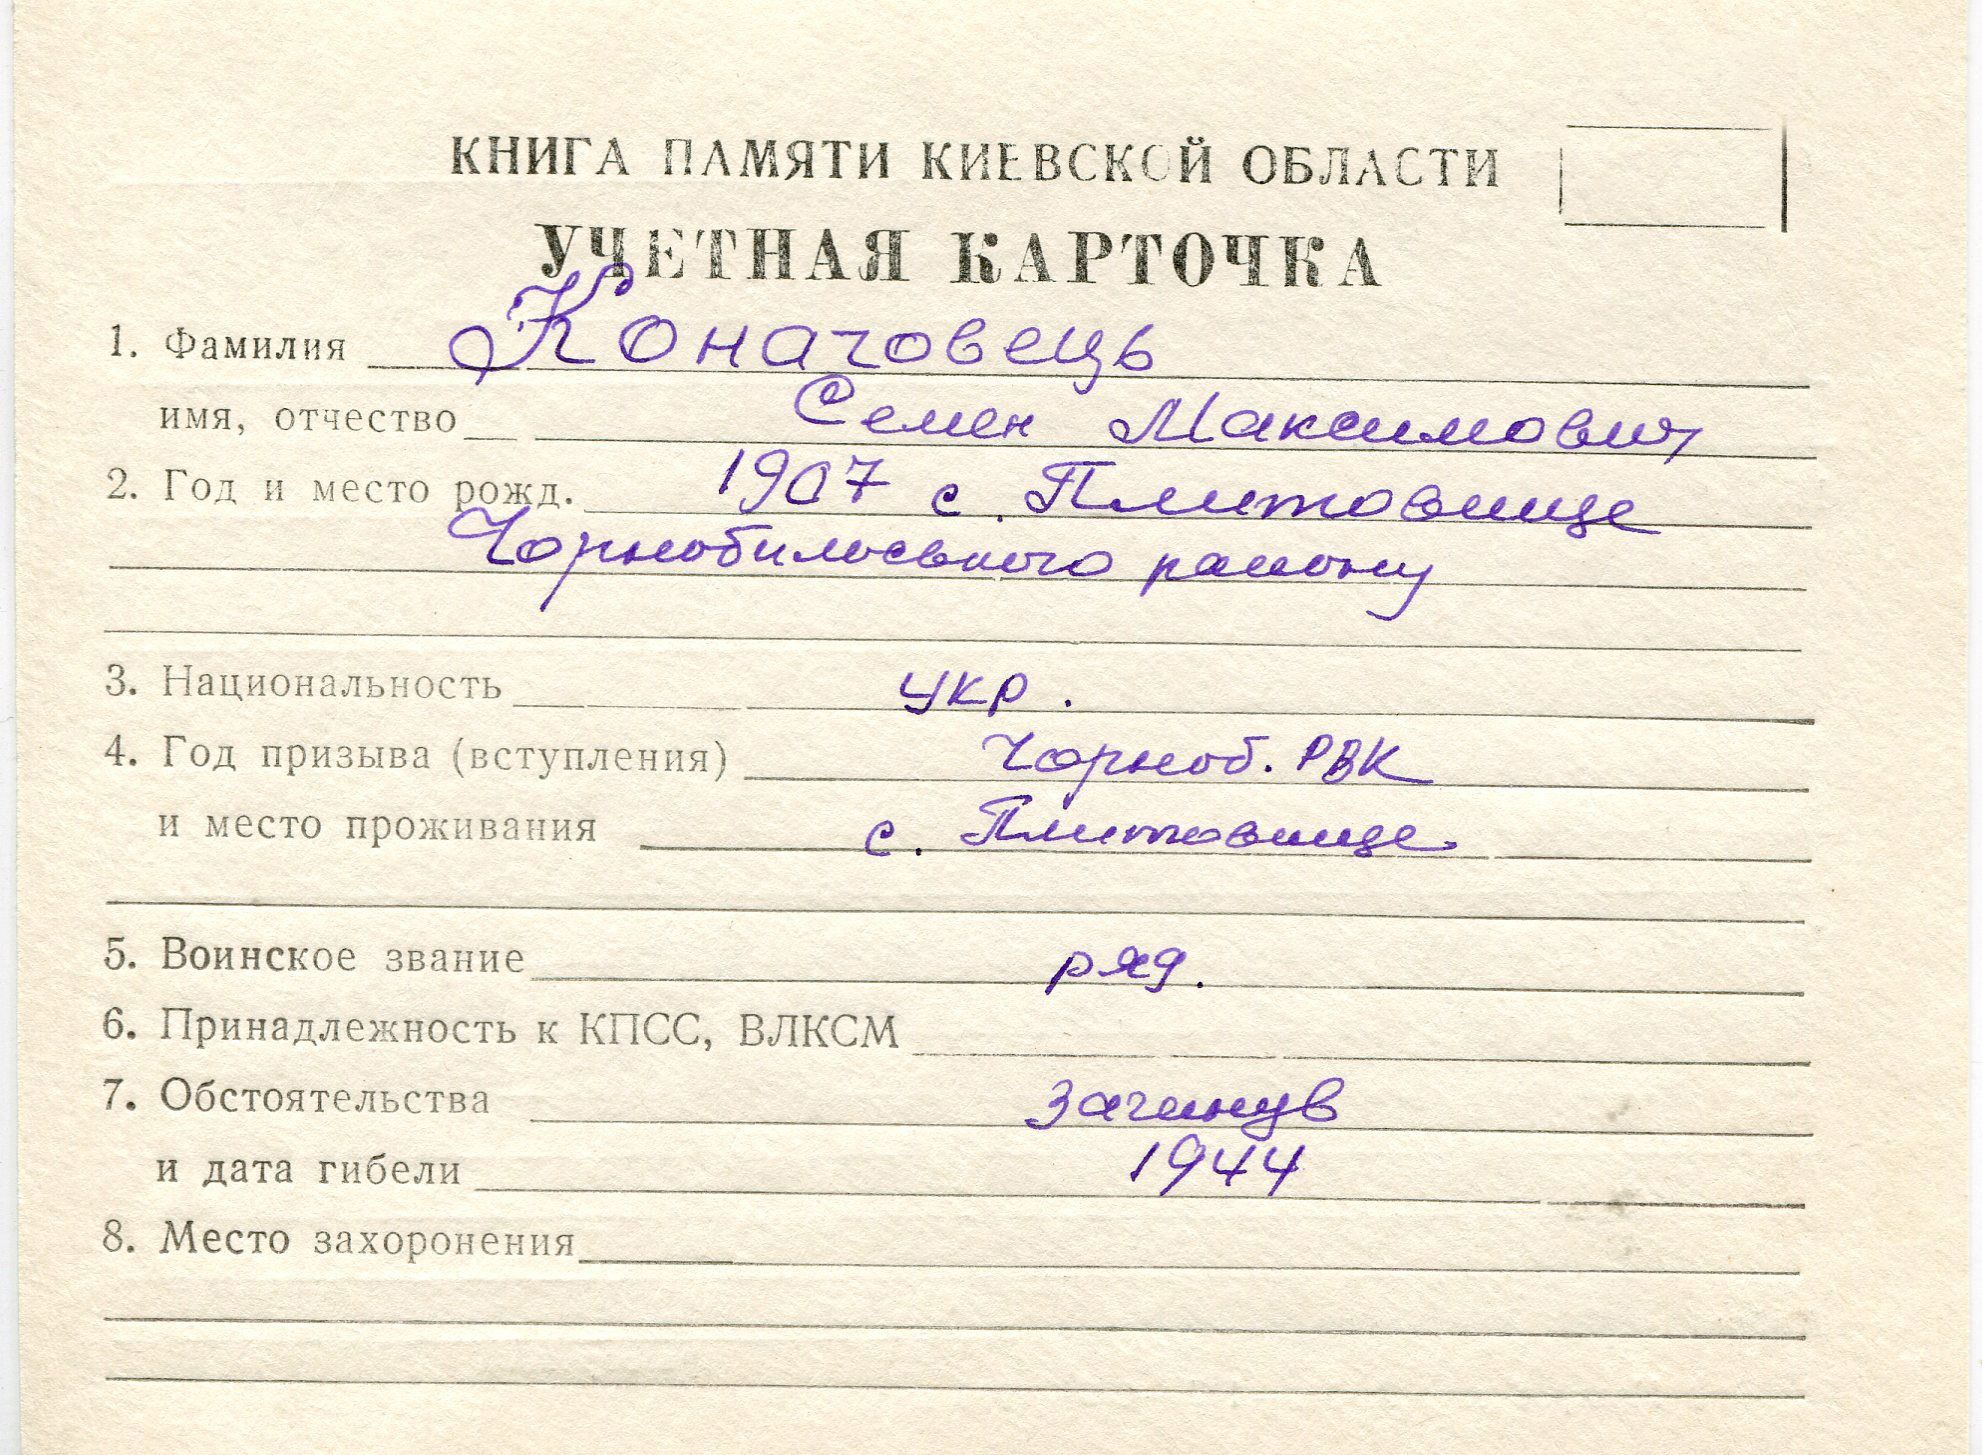 КНИГА ПАМЯТИ КИЕВСКОЙ ОБЛАСТИ
УЧЕТНАЯ КАРТОЧКА
1. Фамилия Конаговець
имя, отчество Семен Максимович
2. Год и место рожд. 1907 с. Плитовище
Чорнобильського району
3. Национальность укр.
4. Год призыва (вступления) Чорноб. РВК
и место проживания с. Плитовище.
5. Воинское звание ряд.
6. Принадлежность к КПСС, ВЛКСМ
7. Обстоятельства загинув
и дата гибели 1944
8. Место захоронения